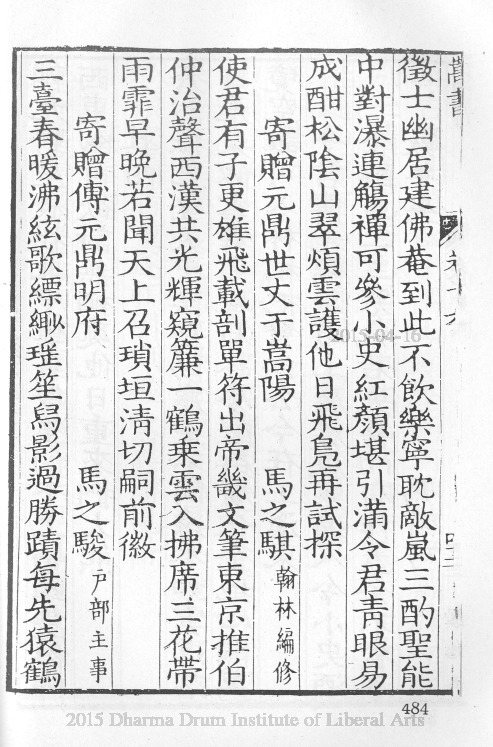 嵩書
徵士幽居建佛菴到此不飲樂寧耽敵嵐三酌聖能
中對瀑連觴禪可參小史紅顏堪引滿令君青眼易
成酣松陰山翠煩雲護他日飛鳧再試探
寄贈元鼎世丈于嵩陽 馬之騏 翰林編修
使君有子更雄飛載剖單符出帝畿文筆東京推伯
仲治聲西漢共光輝窺簾一鶴乘雲入拂席三花帶
雨霏早晚若聞天上召瑣垣清切嗣前徽
寄贈傅元鼎明府 馬之駿 戶部主事
三臺春暖沸絃歌縹緲瑤笙舄影過勝蹟每先猿鶴
2015-04-16
484
2015 Dharma Drum Institute of Liberal Arts